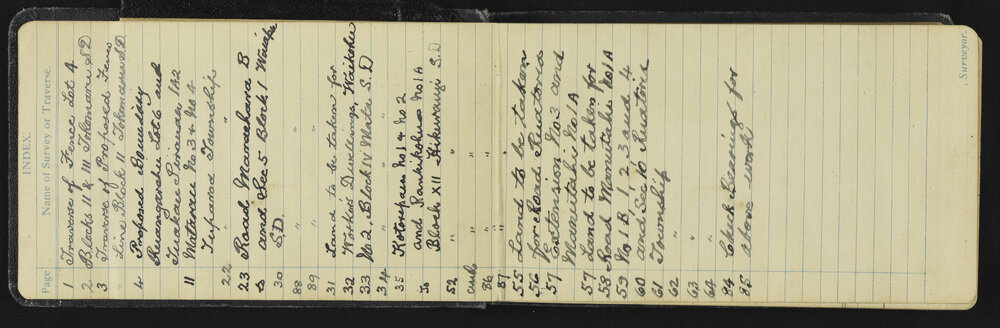 INDEX.
Page Name of Survey or Traverse. Surveyor.
1 Traverse of Fence Lot 4
2 Blocks 11 & 111 Tokomaru S.D
3 Traverse of Proposed Fence
Line Block 11 Tokomaru S.D
4 Proposed Boundary
Ruangarehu Lot 6 and
Tuakau Pirauau 1A2
11 Matarau No 3 & No 4
Tupuroa Township
22 "
23 Road Manaehara B
to and Sec 5 Block 1 Waiapu
30 S.D.
88 "
89 "
31 Land to be taken for
32 Workers Dwellings, Waikohu
33 No 2 Block IV Mata S.D
34
35 Kotorepaea No 1 & No 2
to and Rankikohua No 1A
52 Block XII Hikurangi S.D
and "
86 " "
87 " "
55 Land to be taken
56 for Road Ruatoria
57 Extension No 3 and
Manutahi No 1A
57 Land to be taken for
58 Road Manutahi No 1A
59 No 1B 1, 2, 3 and 4
60 and Sec 10 Ruatoria
61 Township
62 "
63 "
64 "
84 Check Bearings for
85 above work